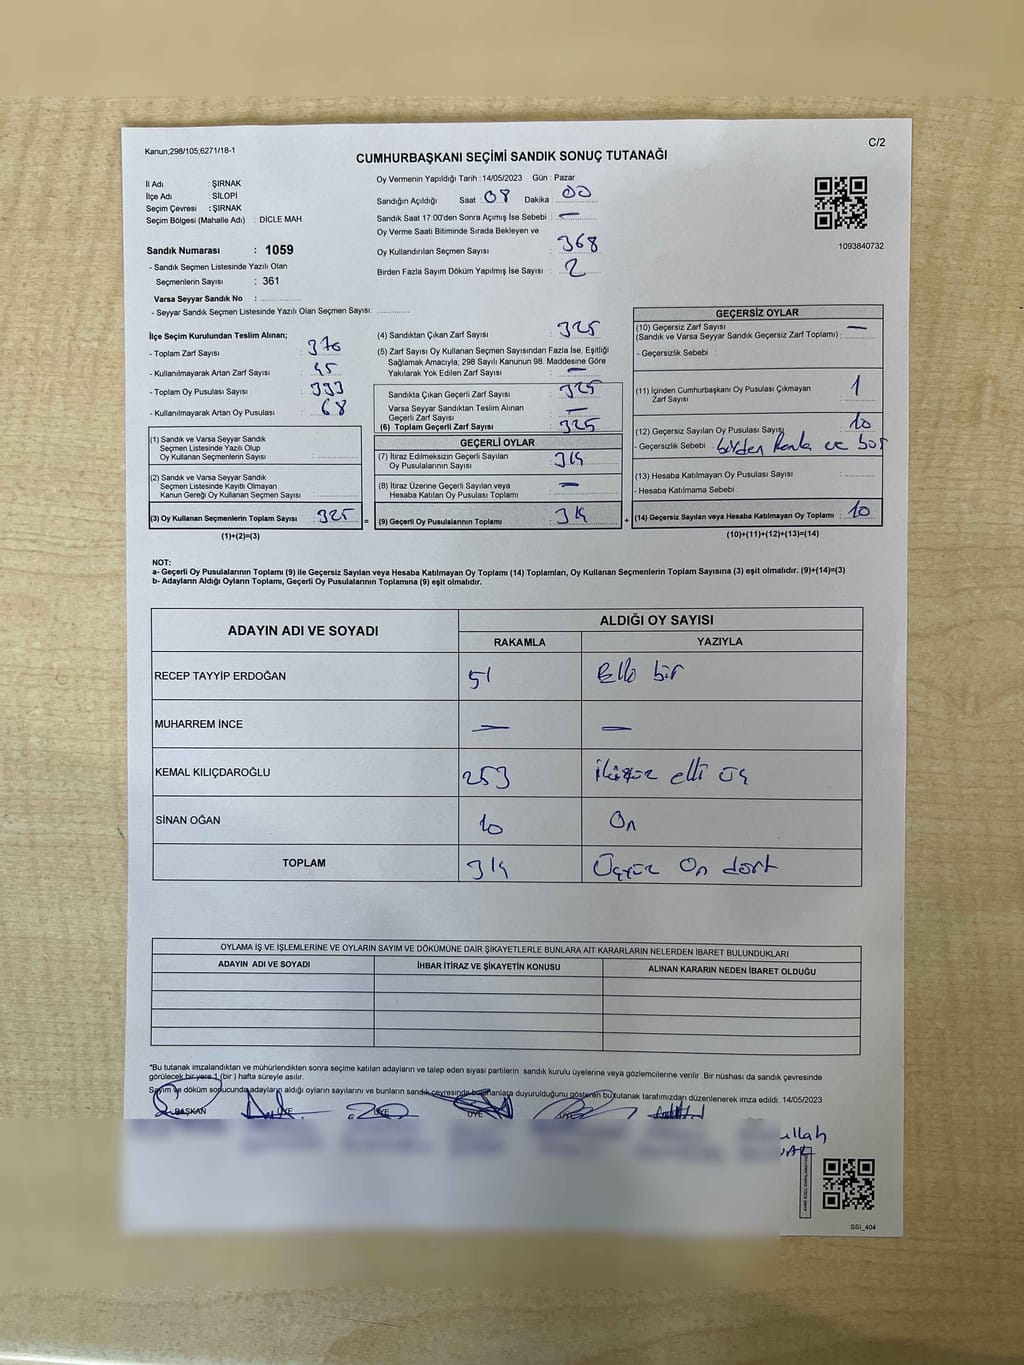 Kanun;298/105;6271/18-1
C/2
CUMHURBAŞKANI SEÇİMİ SANDIK SONUÇ TUTANAĞI
İl Adı : ŞIRNAK
İlçe Adı : SİLOPİ
Seçim Çevresi : ŞIRNAK
Seçim Bölgesi (Mahalle Adı) : DİCLE MAH.
Sandık Numarası : 1059
- Sandık Seçmen Listesinde Yazılı Olan
Seçmenlerin Sayısı : 361
Varsa Seyyar Sandık No :
- Seyyar Sandık Seçmen Listesinde Yazılı Olan Seçmen Sayısı:
Oy Vermenin Yapıldığı Tarih : 14/05/2023 Gün : Pazar
Sandığın Açıldığı Saat : 08 Dakika : 00
Sandık Saat 17:00'den Sonra Açımış İse Sebebi : —
Oy Verme Saati Bitiminde Sırada Bekleyen ve
Oy Kullandırılan Seçmen Sayısı : 368
Birden Fazla Sayım Döküm Yapılmış İse Sayısı : 2
1093840732
İlçe Seçim Kurulundan Teslim Alınan;
- Toplam Zarf Sayısı : 370
- Kullanılmayarak Artan Zarf Sayısı : 45
- Toplam Oy Pusulası Sayısı : 393
- Kullanılmayarak Artan Oy Pusulası : 68
(1) Sandık ve Varsa Seyyar Sandık
Seçmen Listesinde Yazılı Olup
Oy Kullanan Seçmenlerin Sayısı :
(2) Sandık ve Varsa Seyyar Sandık
Seçmen Listesinde Kayıtlı Olmayan
Kanun Gereği Oy Kullanan Seçmen Sayısı :
(3) Oy Kullanan Seçmenlerin Toplam Sayısı : 325 =
(1)+(2)=(3)
(4) Sandıktan Çıkan Zarf Sayısı : 325
(5) Zarf Sayısı Oy Kullanan Seçmen Sayısından Fazla İse, Eşitliği
Sağlamak Amacıyla; 298 Sayılı Kanunun 98. Maddesine Göre
Yakılarak Yok Edilen Zarf Sayısı : —
Sandıkta Çıkan Geçerli Zarf Sayısı : 325
Varsa Seyyar Sandıktan Teslim Alınan
Geçerli Zarf Sayısı : —
(6) Toplam Geçerli Zarf Sayısı : 325
GEÇERLİ OYLAR
(7) İtiraz Edilmeksizin Geçerli Sayılan
Oy Pusulalarının Sayısı : 314
(8) İtiraz Üzerine Geçerli Sayılan veya
Hesaba Katılan Oy Pusulası Toplamı : —
(9) Geçerli Oy Pusulalarının Toplamı : 314 +
GEÇERSİZ OYLAR
(10) Geçersiz Zarf Sayısı : —
(Sandık ve Varsa Seyyar Sandık Geçersiz Zarf Toplamı) :
- Geçersizlik Sebebi :
(11) İçinden Cumhurbaşkanı Oy Pusulası Çıkmayan
Zarf Sayısı : 1
(12) Geçersiz Sayılan Oy Pusulası Sayısı : 10
- Geçersizlik Sebebi : birden fazla ve boş
(13) Hesaba Katılmayan Oy Pusulası Sayısı :
- Hesaba Katılmama Sebebi :
(14) Geçersiz Sayılan veya Hesaba Katılmayan Oy Toplamı : 10
(10)+(11)+(12)+(13)=(14)
NOT:
a- Geçerli Oy Pusulalarının Toplamı (9) ile Geçersiz Sayılan veya Hesaba Katılmayan Oy Toplamı (14) Toplamları, Oy Kullanan Seçmenlerin Toplam Sayısına (3) eşit olmalıdır. (9)+(14)=(3)
b- Adayların Aldığı Oyların Toplamı, Geçerli Oy Pusulalarının Toplamına (9) eşit olmalıdır.
ADAYIN ADI VE SOYADI ALDIĞI OY SAYISI
RAKAMLA YAZIYLA
RECEP TAYYİP ERDOĞAN 51 Elli bir
MUHARREM İNCE — —
KEMAL KILIÇDAROĞLU 253 İkiyüz elli üç
SİNAN OĞAN 10 On
TOPLAM 314 Üçyüz On dört
OYLAMA İŞ VE İŞLEMLERİNE VE OYLARIN SAYIM VE DÖKÜMÜNE DAİR ŞİKAYETLERLE BUNLARA AİT KARARLARIN NELERDEN İBARET BULUNDUKLARI
ADAYIN ADI VE SOYADI İHBAR İTİRAZ VE ŞİKAYETİN KONUSU ALINAN KARARIN NEDEN İBARET OLDUĞU
*Bu tutanak imzalandıktan ve mühürlendikten sonra seçime katılan adayların ve talep eden siyasi partilerin sandık kurulu üyelerine veya gözlemcilerine verilir .Bir nüshası da sandık çevresinde
görülecek bir yere 1 (bir ) hafta süreyle asılır.
Sayım ve döküm sonucunda adayların aldığı oyların sayılarını ve bunların sandık çevresinde bulunanlara duyurulduğunu gösteren bu tutanak tarafımızdan düzenlenerek imza edildi. 14/05/2023
BAŞKAN ÜYE ÜYE ÜYE ÜYE
ullah
SSI_404